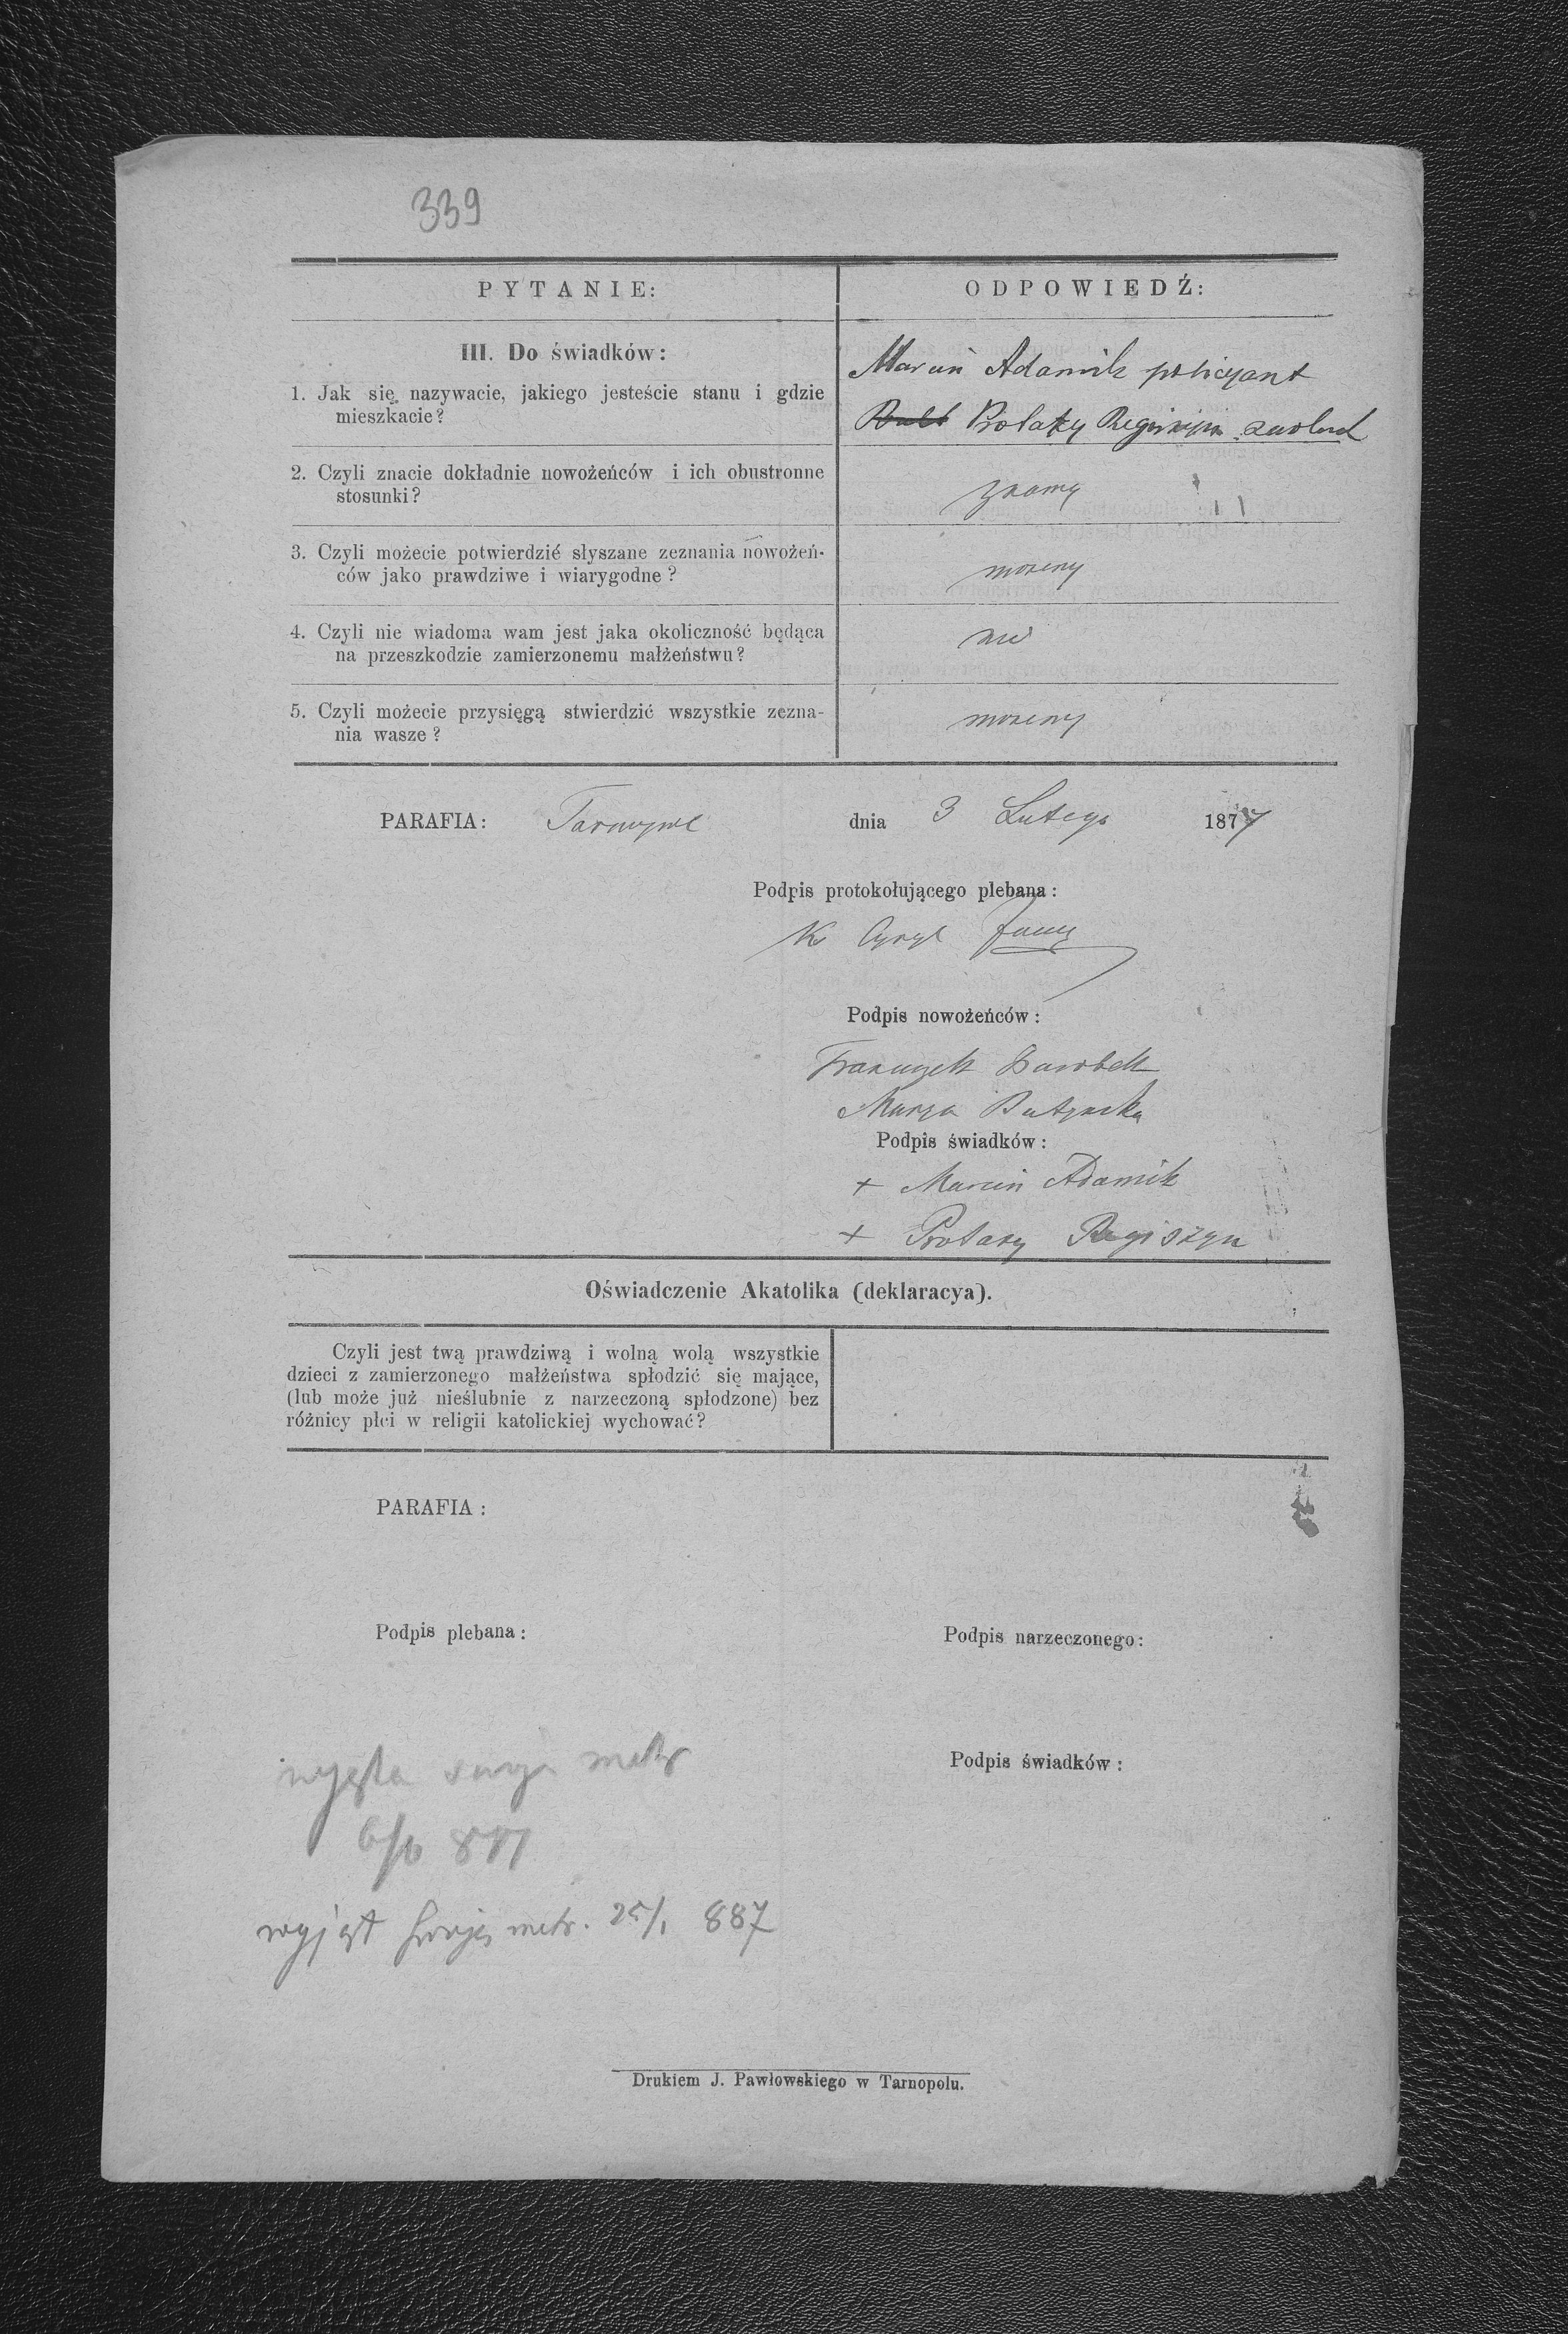 339
PYTANIE:
ODPOWIEDŹ:
III. Do świadków:
1. Jak się nazywacie, jakiego jesteście stanu i gdzie
mieszkacie?
Marcin Adamik policyant
Protazy
2. Czyli znacie dokładnie nowożeńców i ich obustronne
stosunki?
znamy
3. Czyli możecie potwierdzić słyszane zeznania nowożeń-
ców jako prawdziwe i wiarygodne?
mozemy
4. Czyli nie wiadoma wam jest jaka okoliczność będąca
na przeszkodzie zamierzonemu małżeństwu?
nie
5. Czyli możecie przysięgą stwierdzić wszystkie zezna-
nia wasze?
mozemy
PARAFIA:
dnia 3 Lutego 1877
Podpis protokołującego plebana:
Cyryl
Podpis nowożeńców:
Franciszek
Marya
Podpis świadków:
+ Marcin Adamik
+ Protazy Regiszyn
Oświadczenie Akatolika (deklaracya).
Czyli jest twą prawdziwą i wolną wolą wszystkie
dzieci z zamierzonego małżeństwa spłodzić się mające,
(lub może już nieślubnie z narzeczoną spłodzone) bez
różnicy płci w religii katolickiej wychować?
PARAFIA:
Podpis plebana:
Podpis narzeczonego:
Podpis świadków:
wyjęła swoją metr
wyjął swoję metr. 25/1 887
Drukiem J. Pawłowskiego w Tarnopolu.